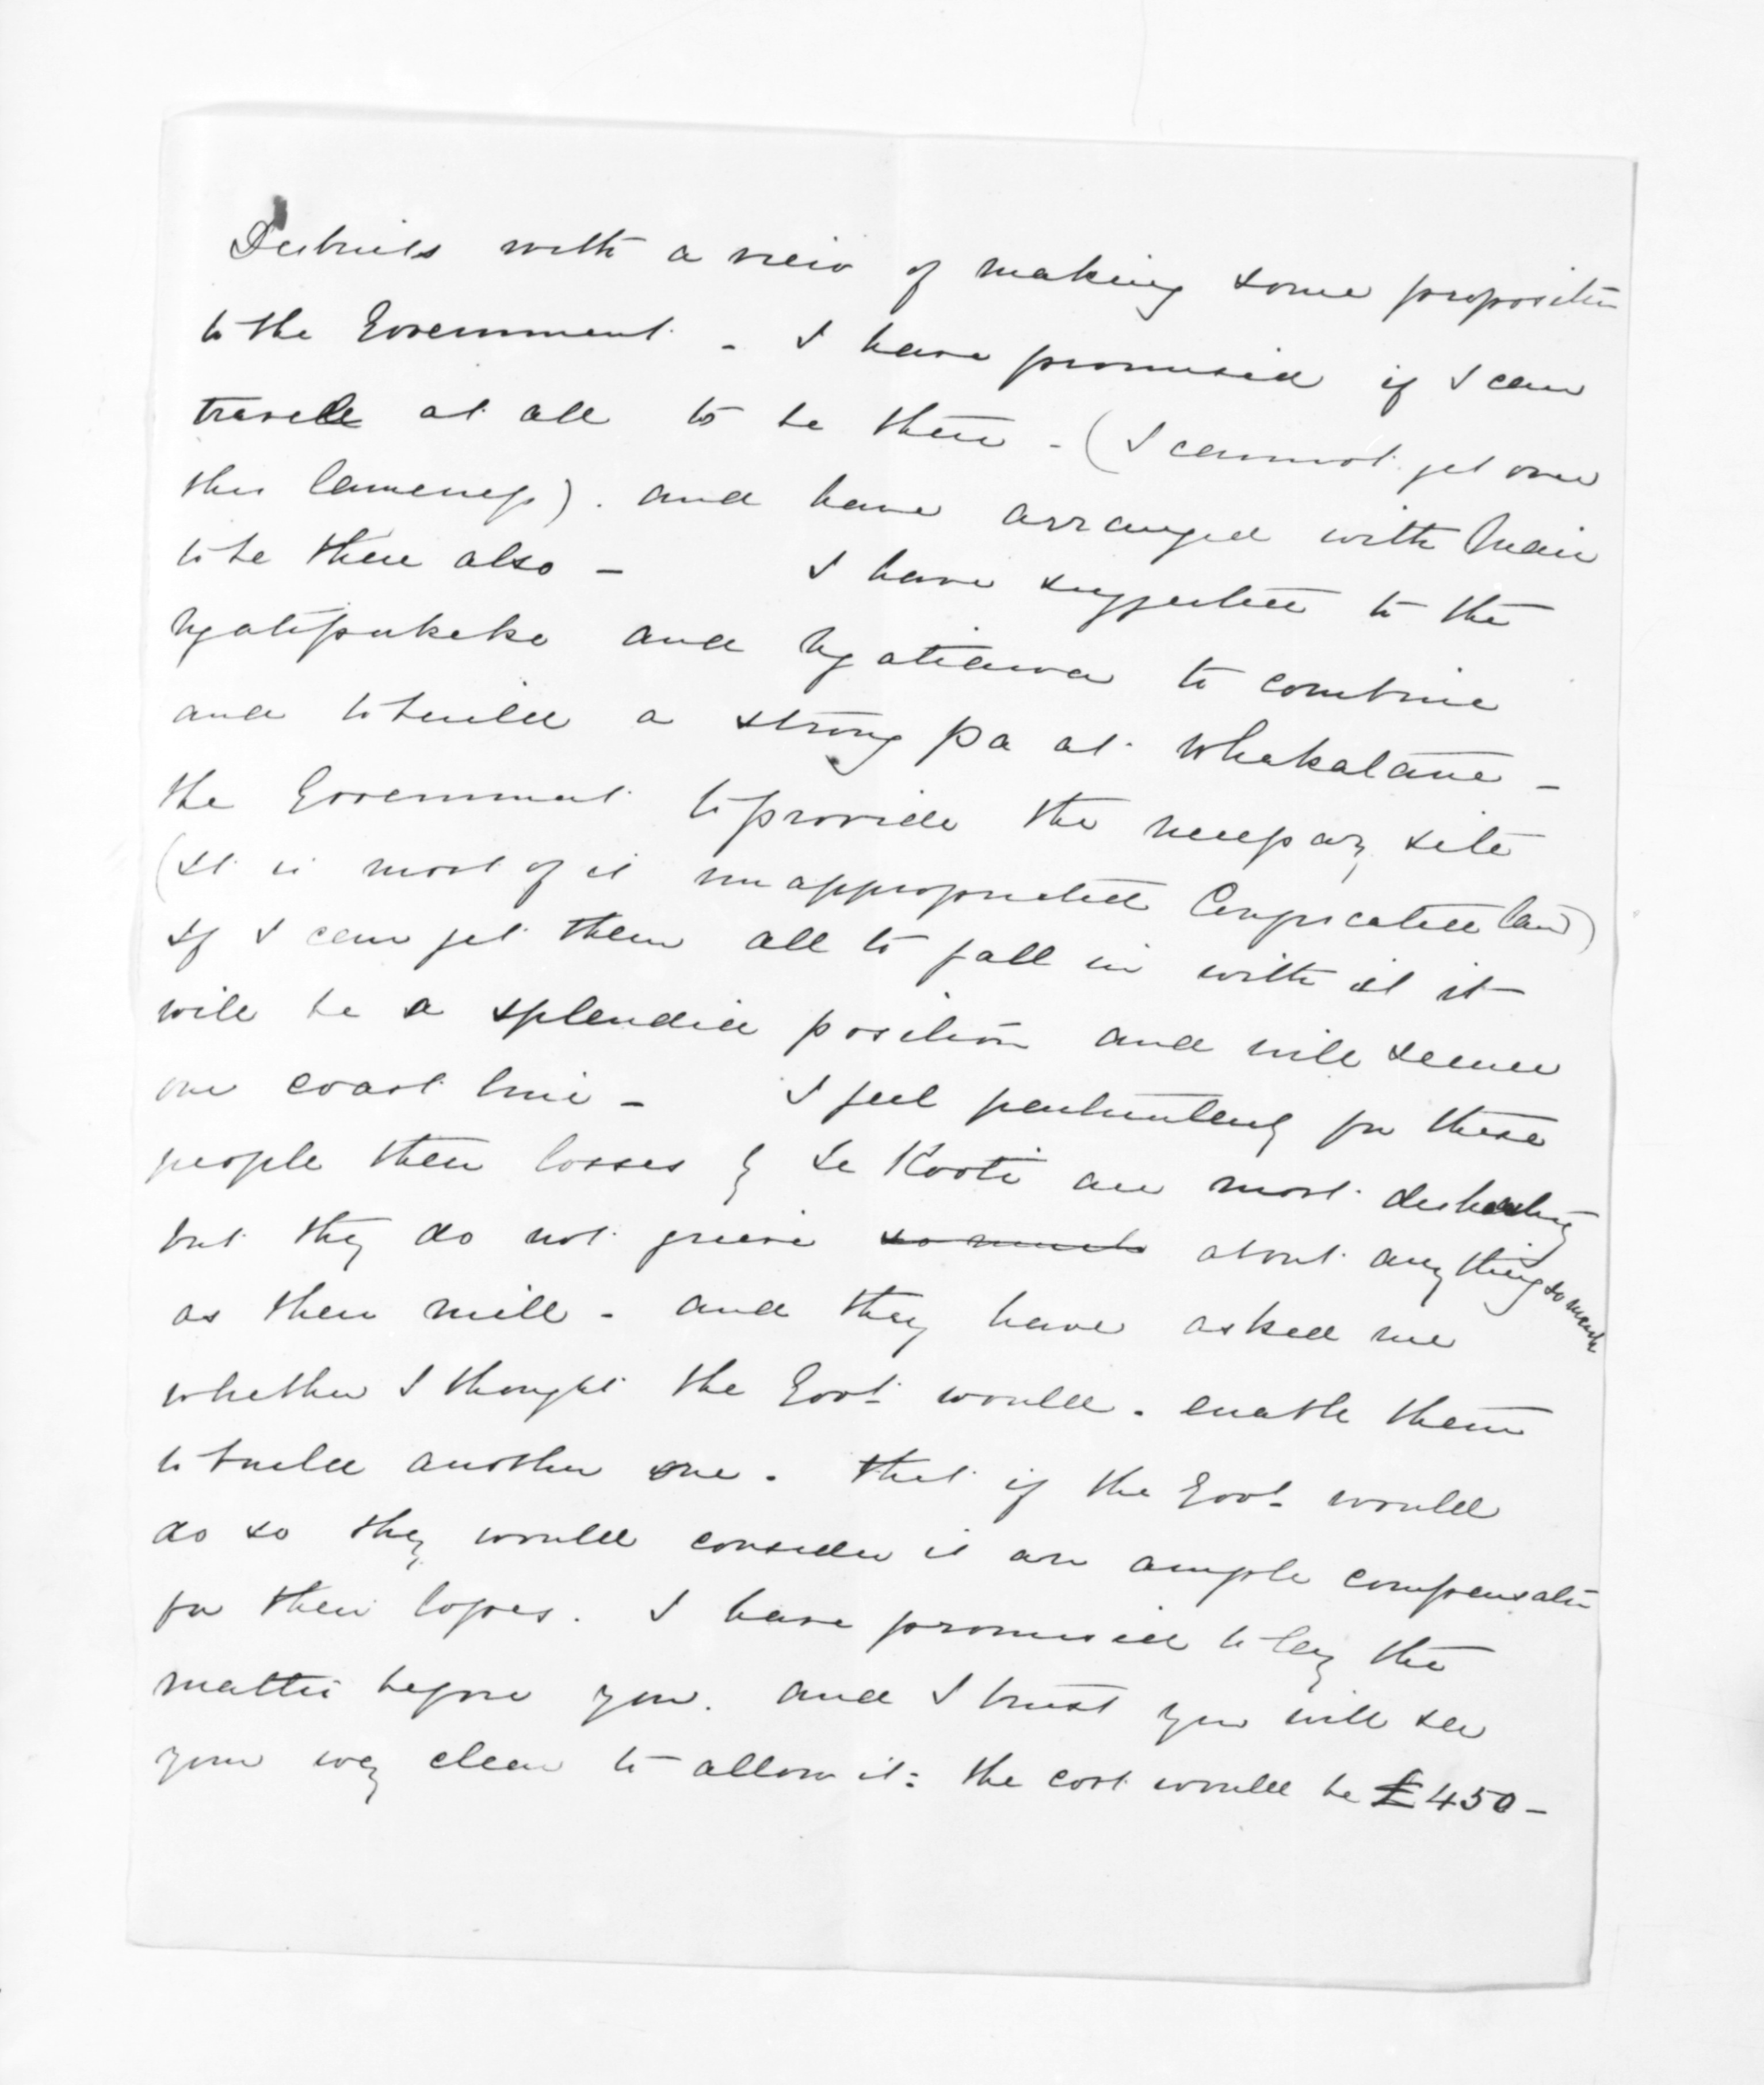 with a view of making some proposition
to the Government - I have promised if I can
travele at all to be there - (I cannot get over
this lameness). and have arranged with Mair
to be there also - I have suggested to the
Ngatipukeko and Ngatiawa to combine
and to build a strong pa at Whakatane -
the Government to provide the necessary site
(It is most of it unappropriated Confiscated land)
If I can get them all to fall in with it it
will be a splendid position and will secure
our coast line - I feel particularly for these
people their losses by Te Kooti are most disheartening
but they do not grieve so much about any thing so much
as their mill - and they have asked me
whether I thought the Govt. would. enable them
to build another one. that if the Govt. would
do so they would consider it an ample compensation
for their losses. I have promised to lay the
matter before you. and I trust you will see
your way clear to allow it: the cost would be £450 -